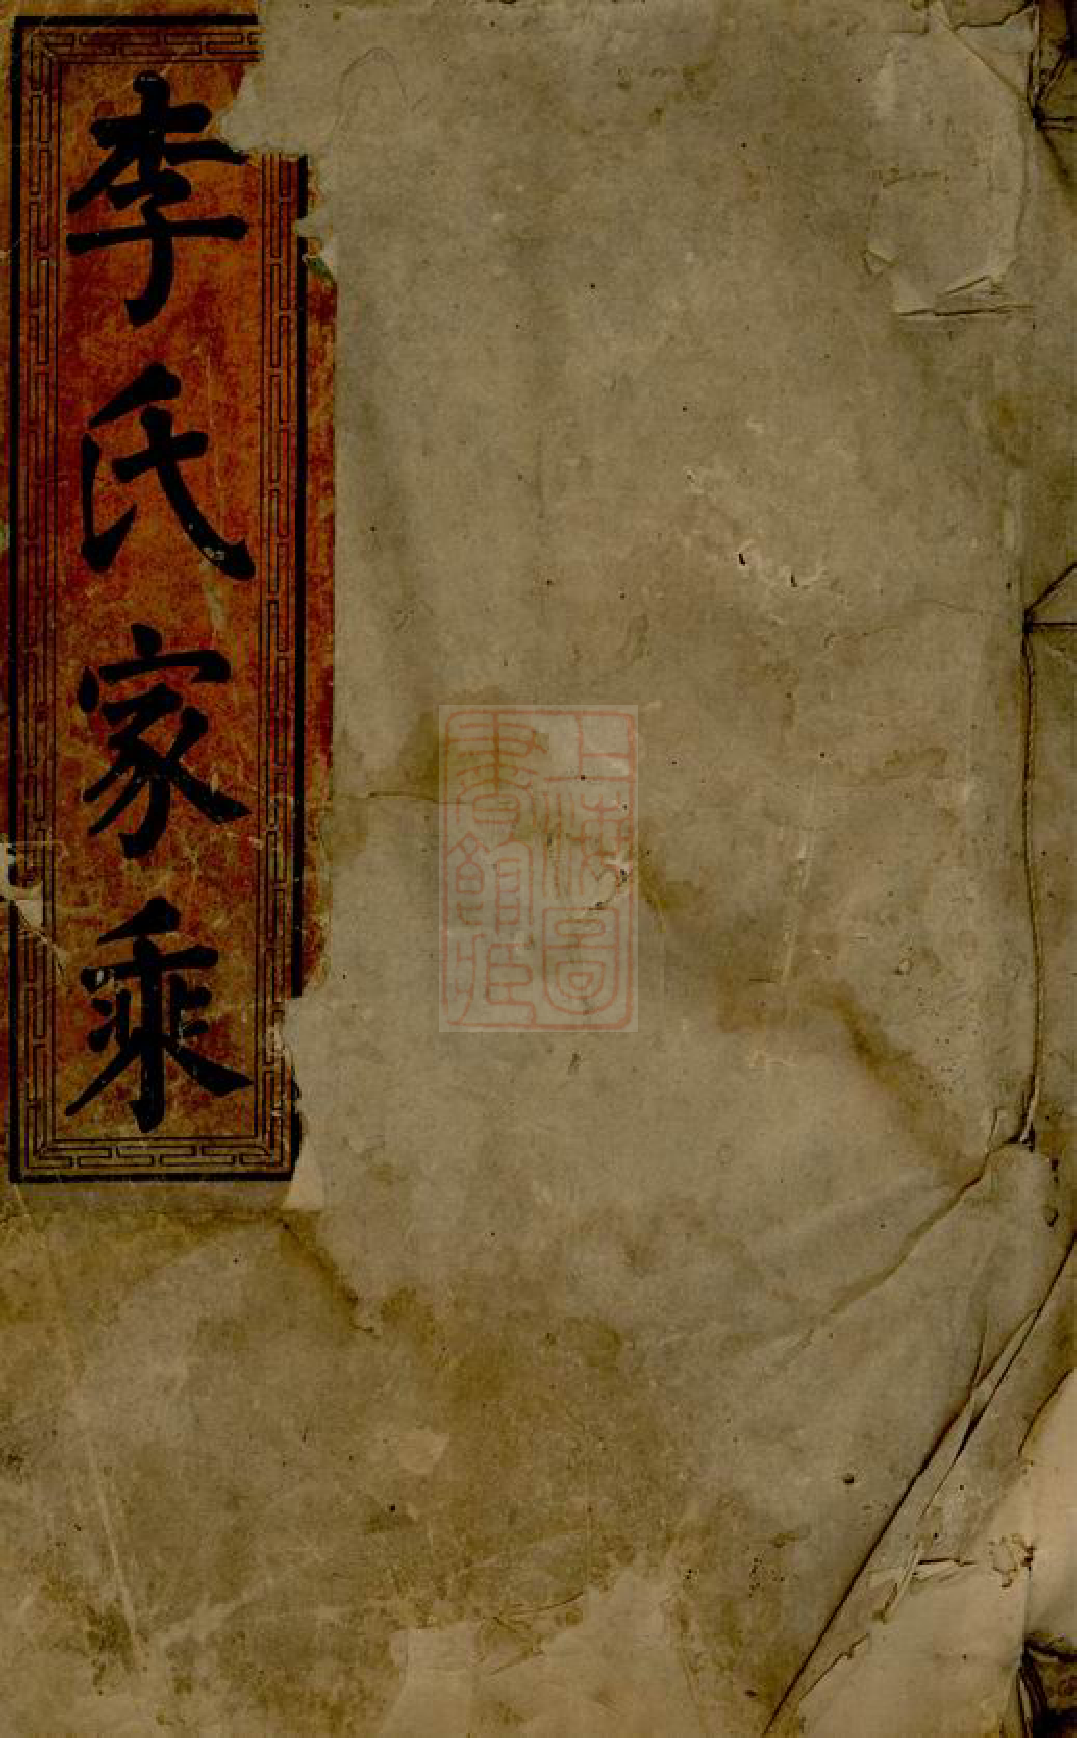 李氏家乘
上海圖
書館藏